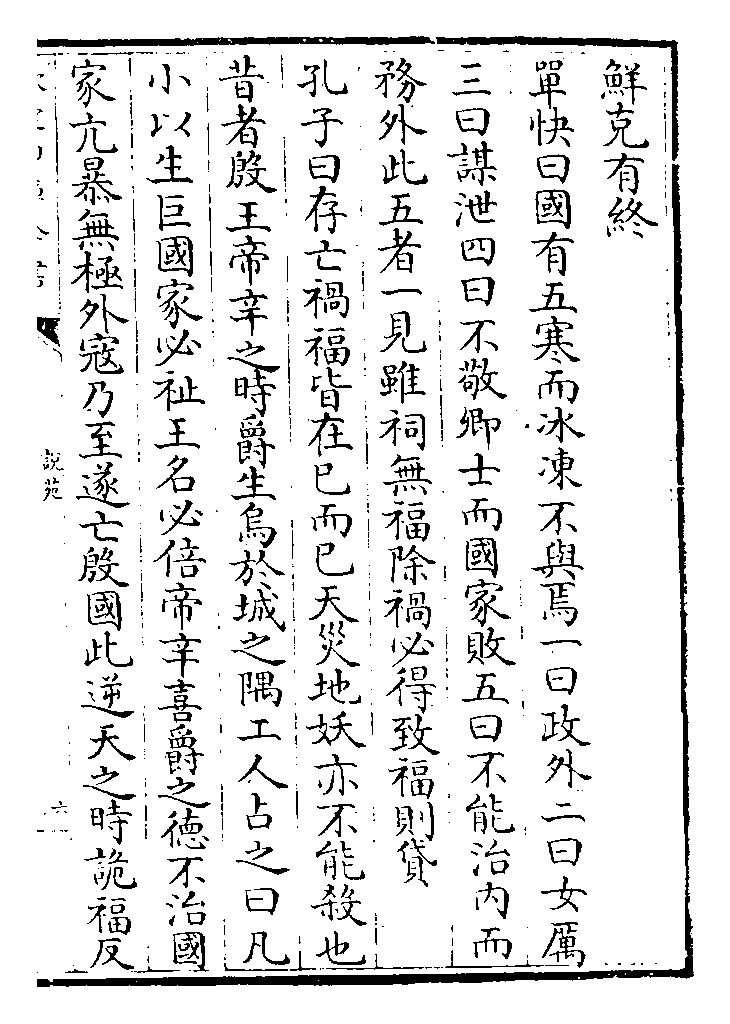 鮮克有終
單快曰國有五寒而冰凍不與焉一曰政外二曰女厲
三曰謀泄四曰不敬卿士而國家敗五曰不能治内而
務外此五者一見雖祠無福除禍必得致福則貸
孔子曰存亡禍福皆在已而已天災地妖亦不能殺也
昔者殷王帝辛之時爵生烏於城之隅工人占之曰凡
小以生巨國家必祉王名必倍帝辛喜爵之德不治國
家亢暴無極外寇乃至遂亡殷國此逆天之時詭福反
說苑
六